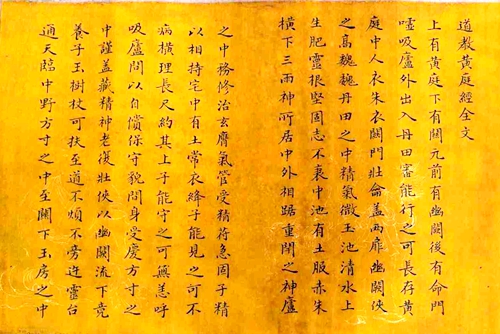 道教黃庭經全文
上有黃庭下有關元前有幽闕後有命門
噓吸廬外出入丹田審能行之可長存黃
庭中人衣朱衣關門壯侖蓋兩扉幽闕俠
之高巍巍丹田之中精氣微玉池清水上
生肥靈根堅固志不衰中池有土服赤朱
橫下三雨神所居中外相踞重閇之神廬
之中務修治玄膺氣管受精符急固子精
以相持宅中有土常衣絳子能見之可不
病橫理長尺約其上子能守之可無恙呼
吸廬間以自償保守貌間身受慶方寸之
中謹蓋藏精神老復壯俠以幽闕流下竟
養子玉樹杖可扶至道不煩不旁迕靈台
通天臨中野方寸之中至關下玉房之中